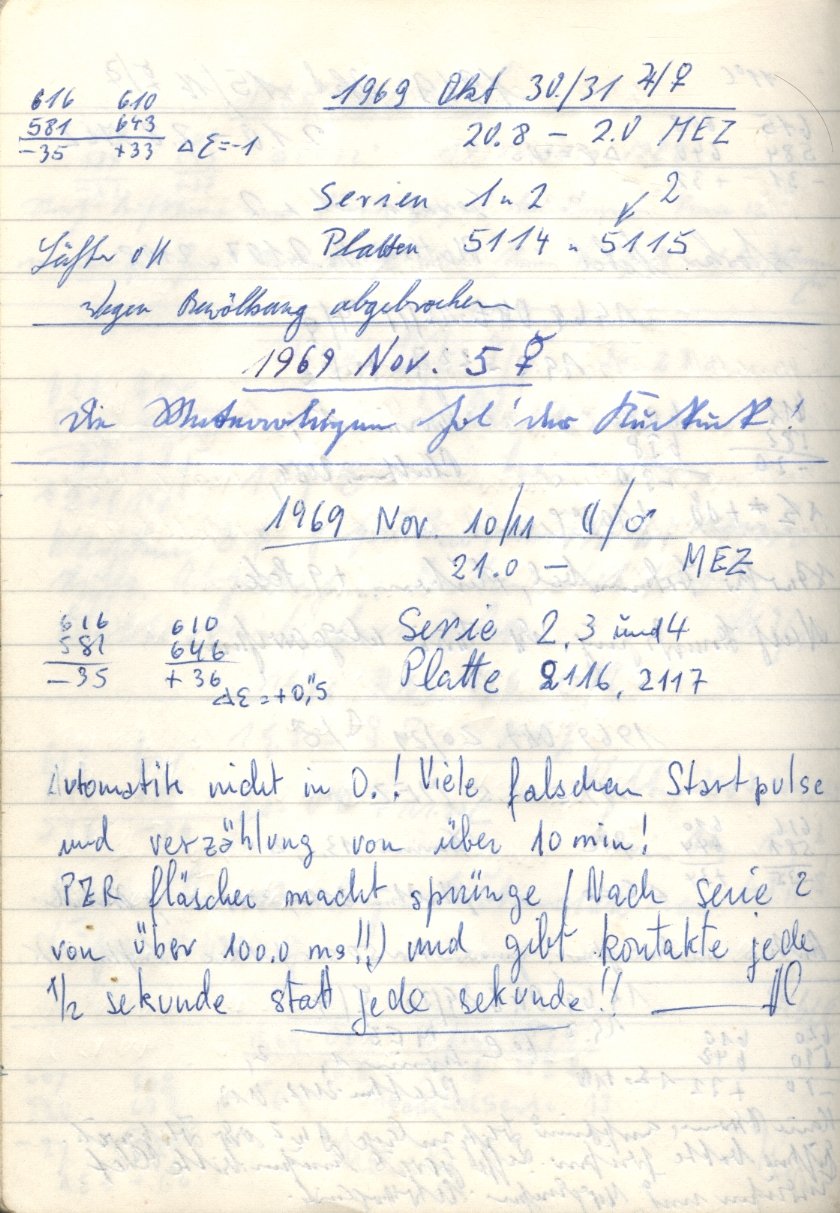 1969 Okt 30/31 ♃/♀
616 610
581 643
20.8 – 2.0 MEZ
-35 +33 Δε=-1
Serien 1 u 2 ↙ 2
Platten 5114 u 5115
Wegen Bewölkung abgebrochen
1969 Nov. 5 ☿
Die Meteorologen hol' der Kuckuck!
1969 Nov. 10/11 ☾/♂
21.0 – MEZ
616 610 Serie 2, 3 und 4
581 646
-35 +36 Platte 2116, 2117
Δε=+0,"5
Automatik nicht in O.! Viele falschen Startpulse
und verzählung von über 10 min!
PZR fläscher macht sprünge (Nach serie 2
von über 100.0 ms!!) und gibt kontakte jede
1/2 sekunde statt jede sekunde!!